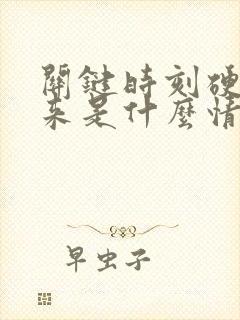 關鍵時刻硬
来是什麼情
早虫子